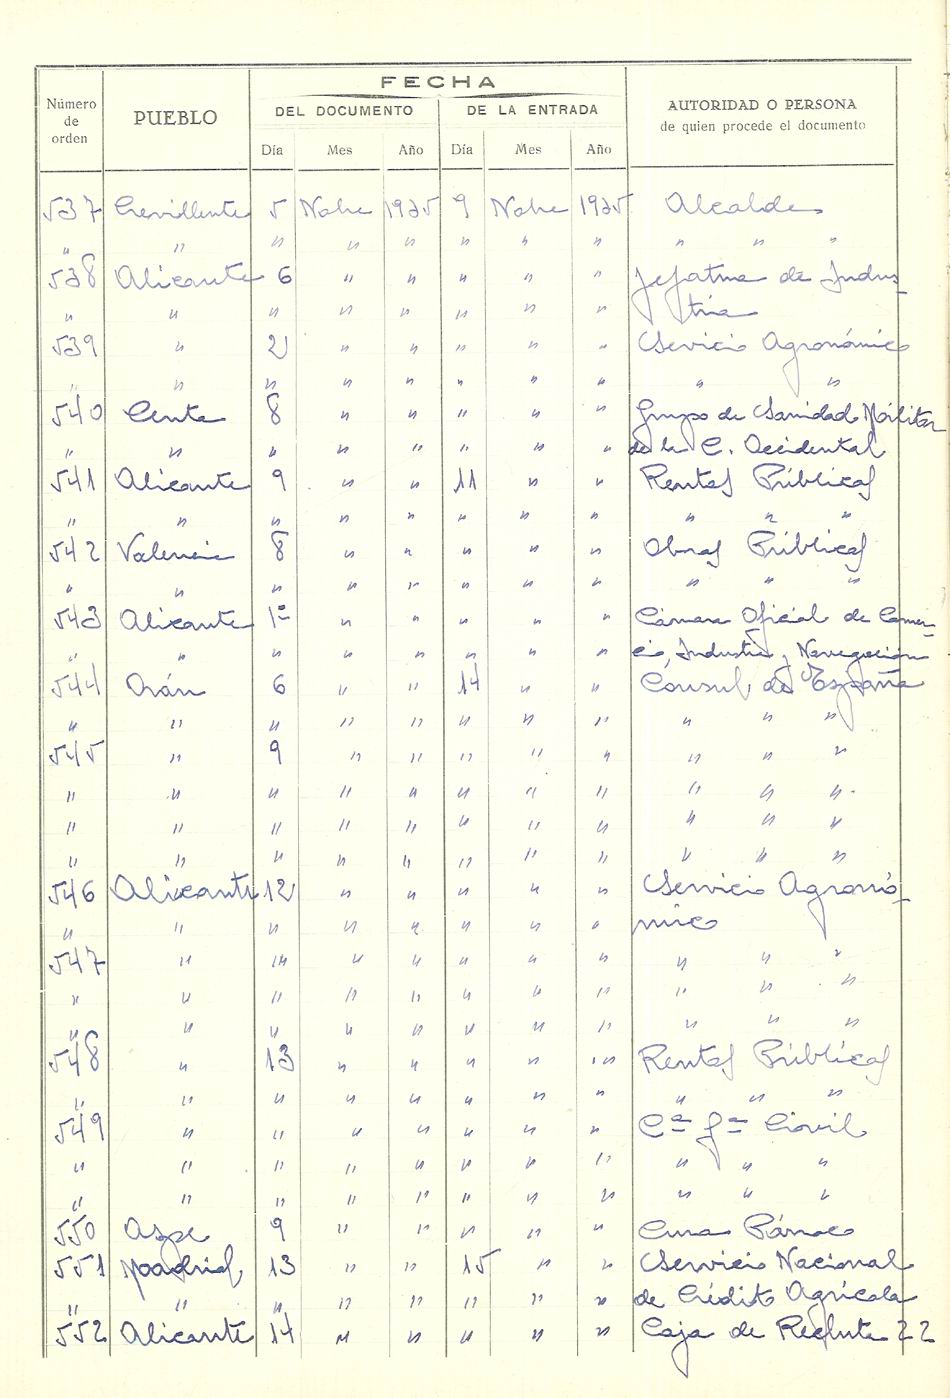 FECHA
Número de orden PUEBLO DEL DOCUMENTO DE LA ENTRADA AUTORIDAD O PERSONA de quien procede el documento
Día Mes Año Día Mes Año
537 Crevillente 5 Nobre 1935 9 Nobre 1935 Alcalde
" " " " " " " " " " "
538 Alicante 6 " " " " " Jefatura de Indus-
" " " " " " " " tria
539 " 2 " " " " " Servicio Agronómico
" " " " " " " " " "
540 Ceuta 8 " " " " " Grupo de Sanidad Militar
" " " " " " " " de la C. Occidental
541 Alicante 9 " " 11 " " Rentas Públicas
" " " " " " " " " " "
542 Valencia 8 " " " " " Obras Públicas
" " " " " " " " " " "
543 Alicante 1º " " " " " Cámara Oficial de Comer-
" " " " " " " " cio, Industria y Navegación
544 Orán 6 " " 14 " " Cónsul de España
" " " " " " " " " " "
545 " 9 " " " " " " " "
" " " " " " " " " " "
" " " " " " " " " " "
" " " " " " " " " " "
546 Alicante 12 " " " " " Servicio Agronó-
" " " " " " " " mico
547 " " " " " " " " " "
" " " " " " " " " " "
" " " " " " " " " " "
548 " 13 " " " " " Rentas Públicas
" " " " " " " " " " "
549 " " " " " " " Cª Gª Civil
" " " " " " " " " " "
" " " " " " " " " " "
550 Aspe 9 " " " " " Cura Párroco
551 Madrid 13 " " 15 " " Servicio Nacional
" " " " " " " " de Crédito Agrícola
552 Alicante 14 " " " " " Caja de Recluta 22